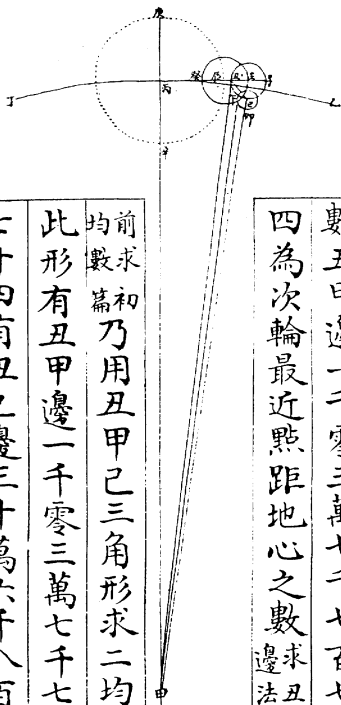 庚
丙
辛
丁
乙
癸
己
卯
甲
數丑甲邊一千零三萬七千七百七
四為次輪最近點距地心之數求丑
邊法
前求初
均數篇乃用丑甲己三角形求二均
此形有丑甲邊一千零三萬七千七
七十四有丑己邊三十萬六千八百